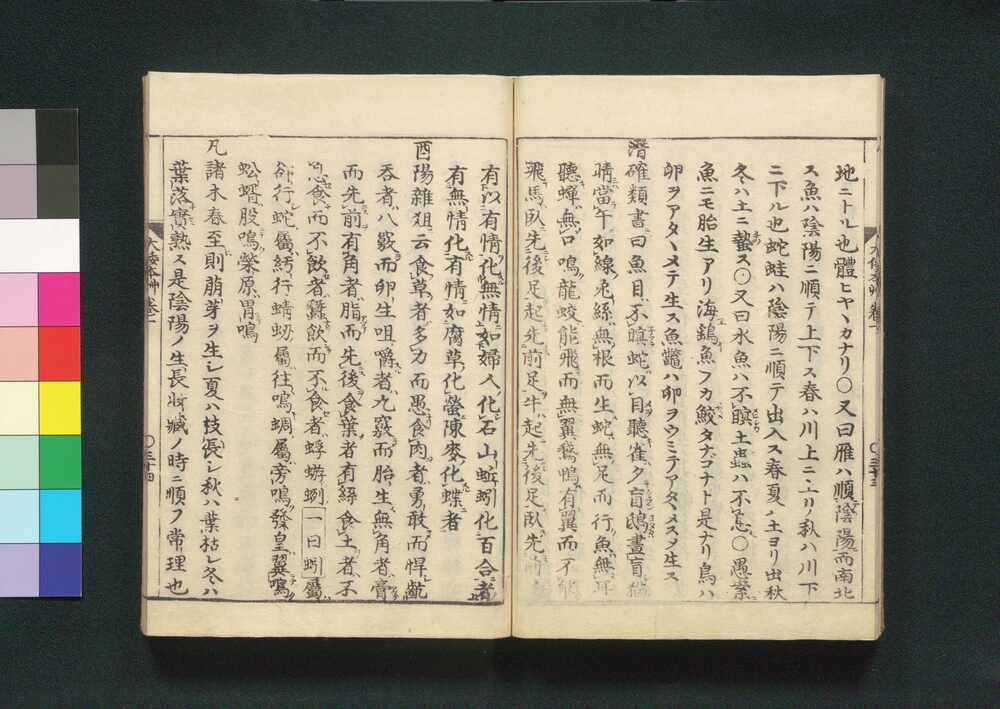 地ニトル也體ヒヤヽカナリ〇又曰雁ハ順陰陽而南北
ス魚ハ陰陽ニ順テ上下ス春ハ川上ニ上リ秋ハ川下
ニ下ル也蛇蛙ハ陰陽ニ順テ出入ス春夏ハ土ヨリ出秋
冬ハ土ニ蟄ス〇又曰水魚ハ不瞑土蟲ハ不息〇愚案
魚ニモ胎生アリ海鷂魚フカ鮫タナコナト是ナリ鳥ハ
卵ヲアタヽメテ生ス魚鼈ハ卵ヲウミテアタヽメスメ生ス
潛確類書曰魚目不瞑蛇以目聽雀夕盲鴟晝盲猫
睛當午如線兎絲無根而生蛇無足而行魚無耳
聽蟬無口鳴龍蛟能飛而無翼鵞鴨有翼而不能
飛馬臥先後足起先前足牛起先後足臥先前
有以有情化無情如婦人化石山蚯蚓化百合者
有無情化有情如腐草化螢陳麥化蝶者
酉陽雜俎云食草者多力而愚食肉者勇敢而悍齕
吞者八竅而卵生咀嚼者九竅而胎生無角者膏
而先前有角者脂而先後食葉者有絲食土者不
息食而不飲者蠶飲而不食者蜉蝣蚓一曰蚓屬
却行蛇屬紆行蜻蚓屬往鳴蜩屬旁鳴發皇翼鳴
蚣蝑股鳴榮原胃鳴
凡諸木春至則萌芽ヲ生シ夏ハ枝長シ秋ハ葉枯レ冬ハ
葉落實熟ス是陰陽ノ生長收藏ノ時ニ順フ常理也
大倭本草 卷一
〇三十四